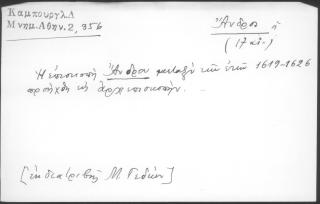 Καμπουργλ.Δ
Μνημ.Αθην.2, 356
Ἄνδρος ἡ
(17 αἰ.)
Ἡ ἐπισκοπὴ Ἄνδρου μεταξὺ τῶν ἐτῶν 1619-1626
προήχθη εἰς ἀρχιεπισκοπήν.
[ἐκ διατριβῆς Μ. Γεδεών]